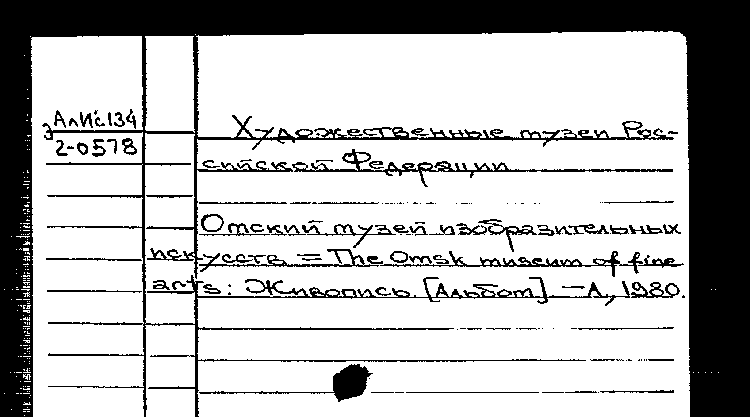 АлИс134
э 2-0578
Художественные музеи Рос-
сийской Федерации
Омский музей изобразительных
искусств = The Omsk museum of fine
arts: Живопись. [Альбом]. — Л, 1980.